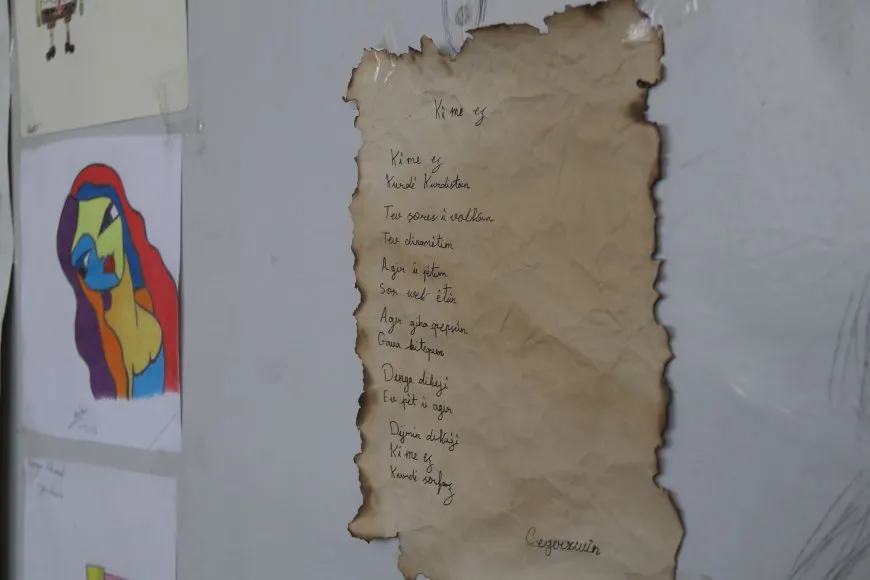 Ki me ez
Ki me ez
Kurdê Kurdistan
Tev şoreş û volkan
Tev dinamêtim
Agir û pêtim
Sor wek êtûn
Agir giha qepsûn
Gava biteqim
Denge dikeji
Ev pêt û agir
Dijmin dikuji
Ki me ez
Kurdê serfraz
Cegerxwîn